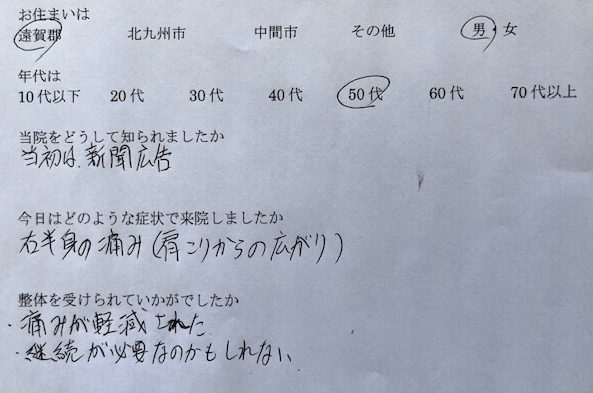 お住まいは
遠賀郡 北九州市 中間市 その他 男・女
年代は
10代以下 20代 30代 40代 50代 60代 70代以上
当院をどうして知られましたか
当初は、新聞広告
今日はどのような症状で来院しましたか
右半身の痛み(肩こりからの広がり)
整体を受けられていかがでしたか
・痛みが軽減された
・継続が必要なのかもしれない、